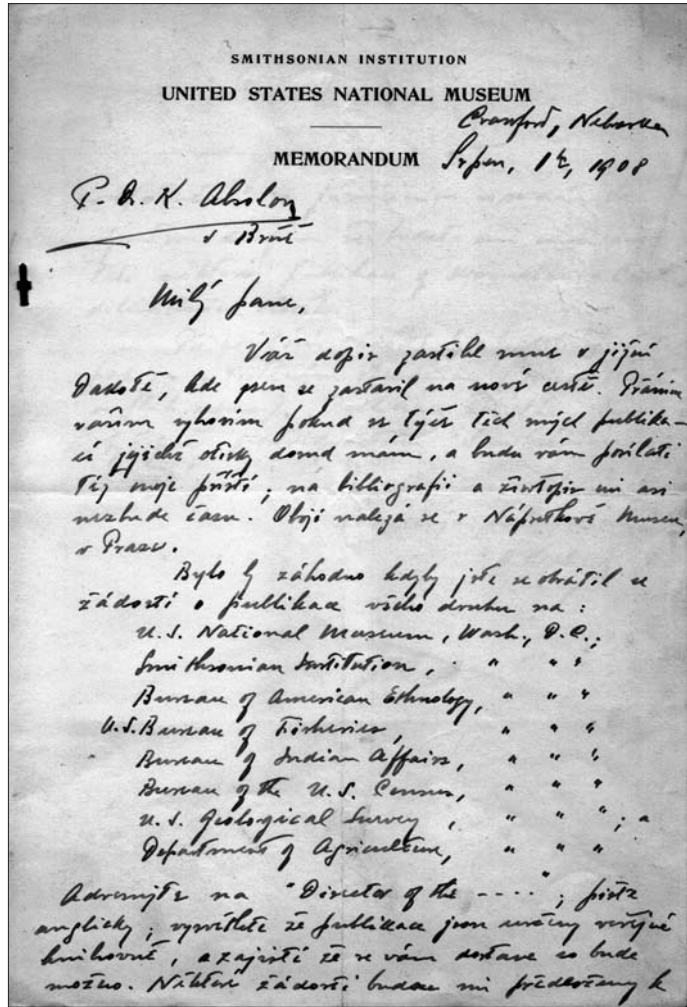 SMITHSONIAN INSTITUTION
UNITED STATES NATIONAL MUSEUM
Crawford, Nebraska
MEMORANDUM Srpen, 1908
K. Absolon
v Brně
Milý pane,
Váš dopis zastihl mne v jižní
Dakotě, kde jsem se zastavil na nové cestě. Přáním
vašim vyhovím pokud se týče těch mých publika-
cí jejichž otisky doma mám, a budu vám posílati
též moje příští; na bibliografii a životopis mi asi
nezbude času. Obojí nalezá se v Náprstkově Museu,
v Praze.
Bylo by záhodno kdyby jste se obrátil se
žádostí o publikace všeho druhu na:
U.S. National Museum, Wash., D.C.;
Smithsonian Institution, " " "
Bureau of American Ethnology, " " "
U.S. Bureau of Fisheries, " " "
Bureau of Indian Affairs, " " "
Bureau of the U.S. Census, " " "
U.S. Geological Survey, " " "; a
Department of Agriculture, " " "
Adresujte na "Director of the ----"; pište
anglicky; vysvětlete že publikace jsou určeny veřejné
knihovně, a zajistí že se vám dostane co bude
možno. Některé žádosti budou mi předloženy k